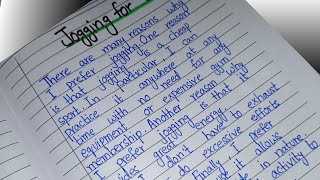 Jogging for
There are many reasons why
I prefer jogging. One reason
is that jogging is a cheap
sport. In particular, I can
practice it anywhere at any
time with no need for any
equipment or expensive gym
membership. Another reason
I prefer jogging is that it
energy.
I don't have to exhaust
do excessive efforts
Finally, I prefer
it allows
in nature,
activity to